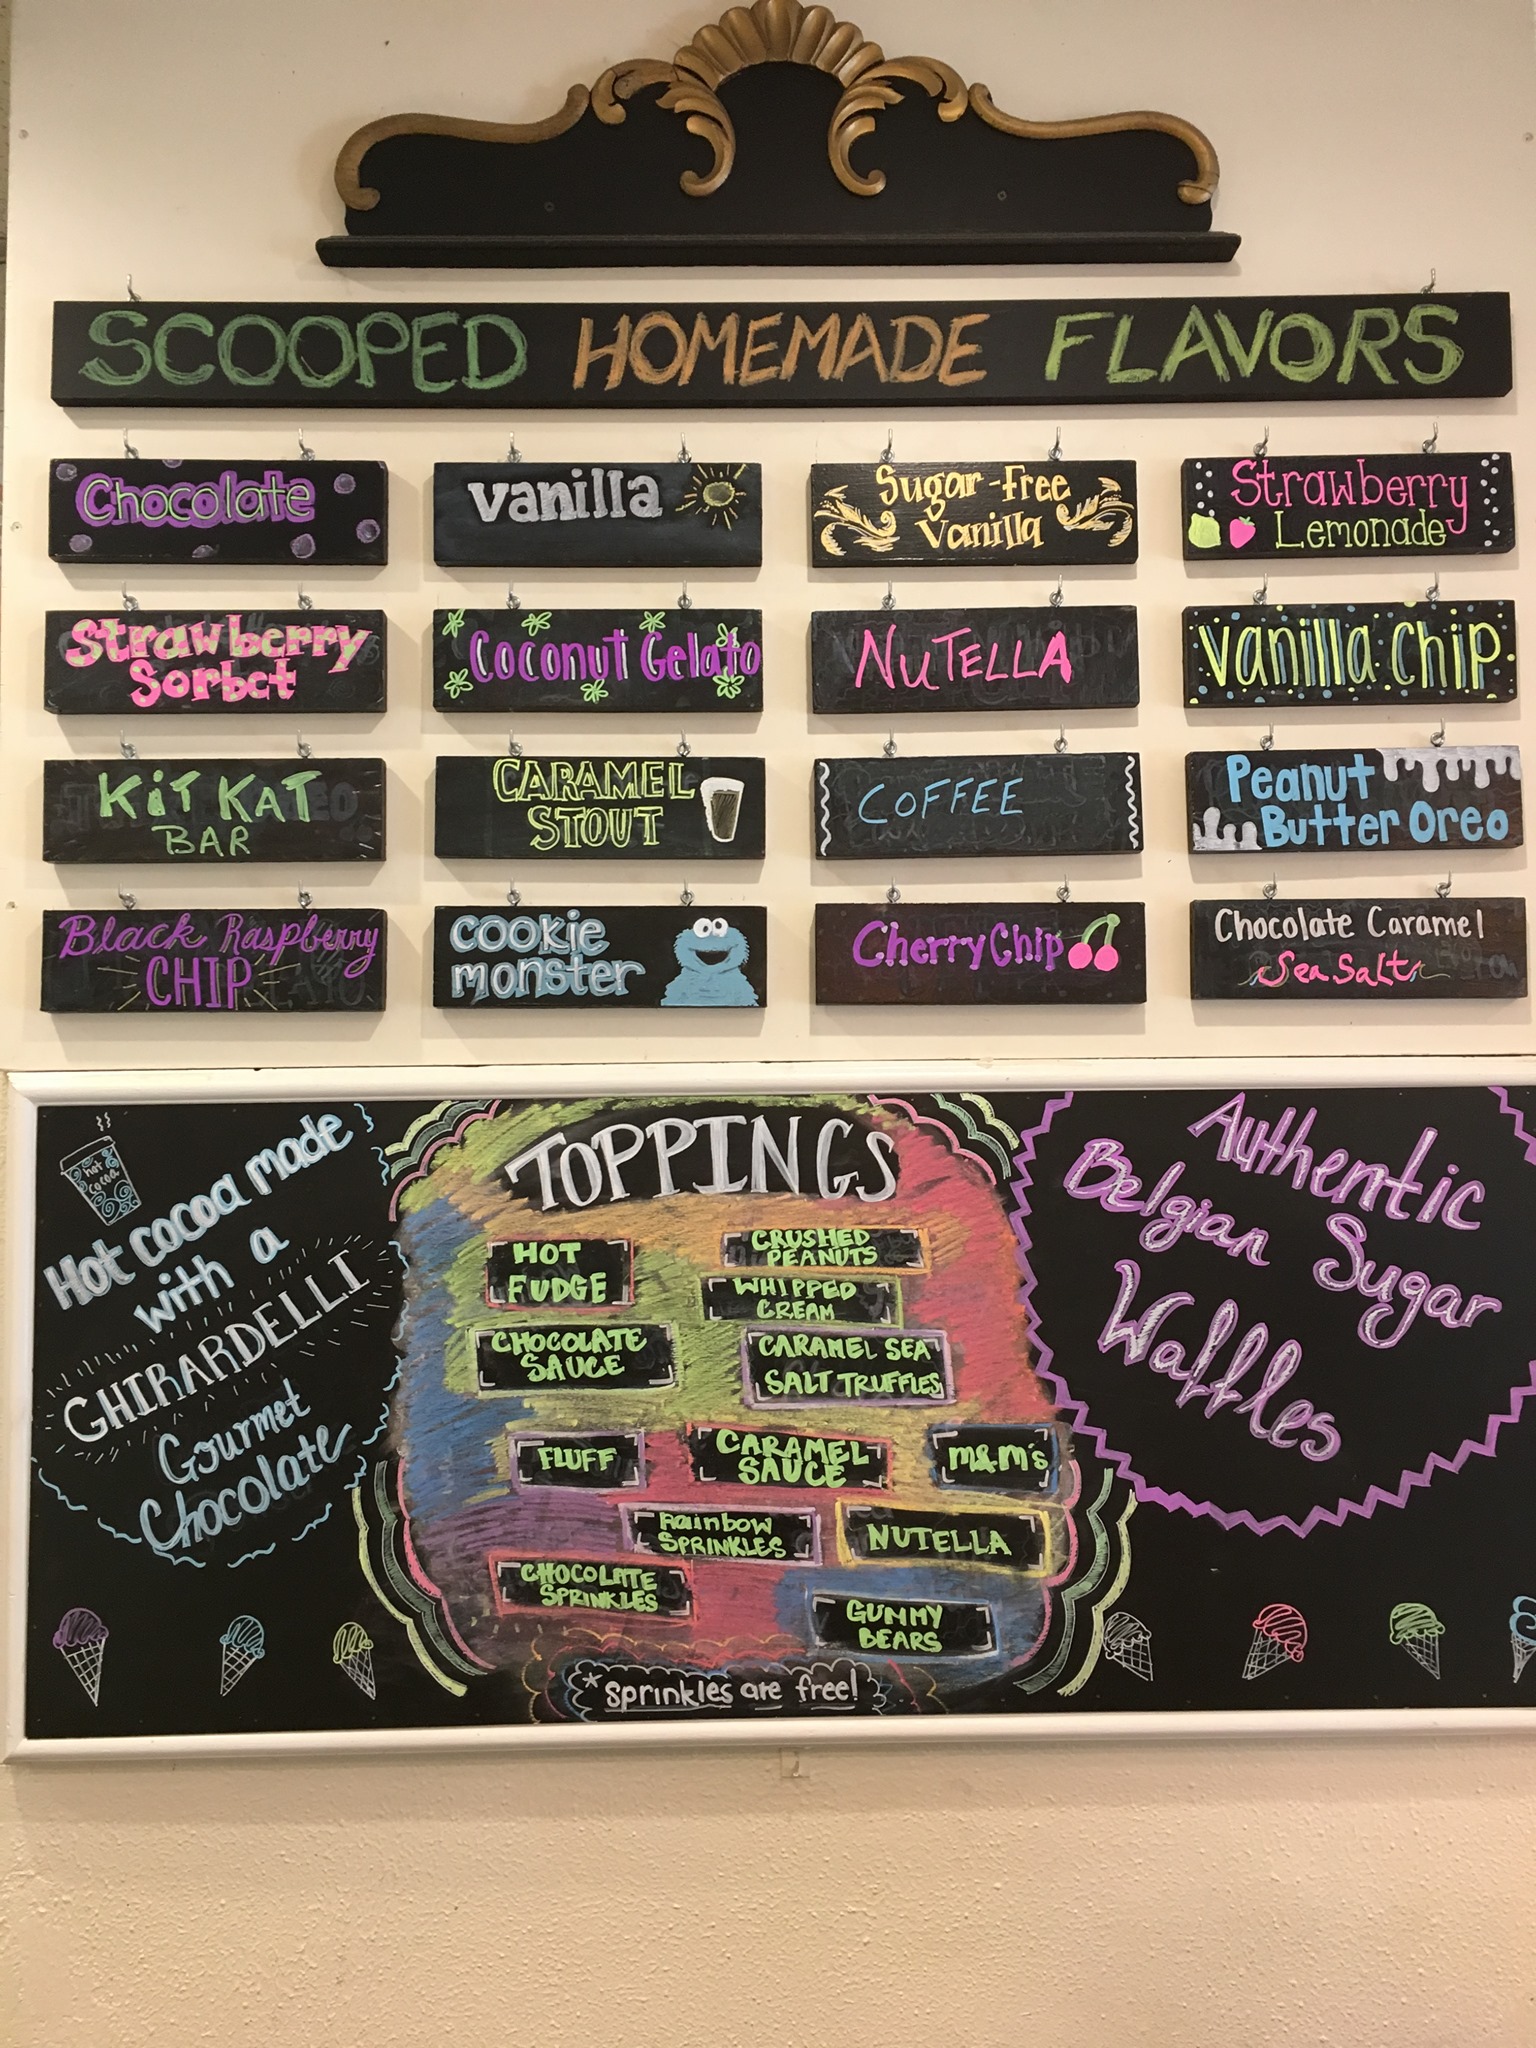 SCOOPED HOMEMADE FLAVORS
Chocolate
vanilla
Sugar-Free
Vanilla
Strawberry
Lemonade
Strawberry
Sorbet
Coconut Gelato
NUTELLA
Vanilla Chip
KiT KAT
BAR
CARAMEL
STOUT
COFFEE
Peanut
Butter Oreo
Black Raspberry
CHIP
cookie
monster
Cherry Chip
Chocolate Caramel
Sea Salt
hot
cocoa
Hot cocoa made
with a
GHIRARDELLI
Gourmet
Chocolate
TOPPINGS
HOT
FUDGE
CRUSHED
PEANUTS
WHIPPED
CREAM
CHOCOLATE
SAUCE
CARAMEL SEA
SALT TRUFFLES
FLUFF
CARAMEL
SAUCE
M&M's
Rainbow
SPRINKLES
NUTELLA
CHOCOLATE
SPRINKLES
GUMMY
BEARS
*sprinkles are free!
Authentic
Belgian Sugar
Waffles